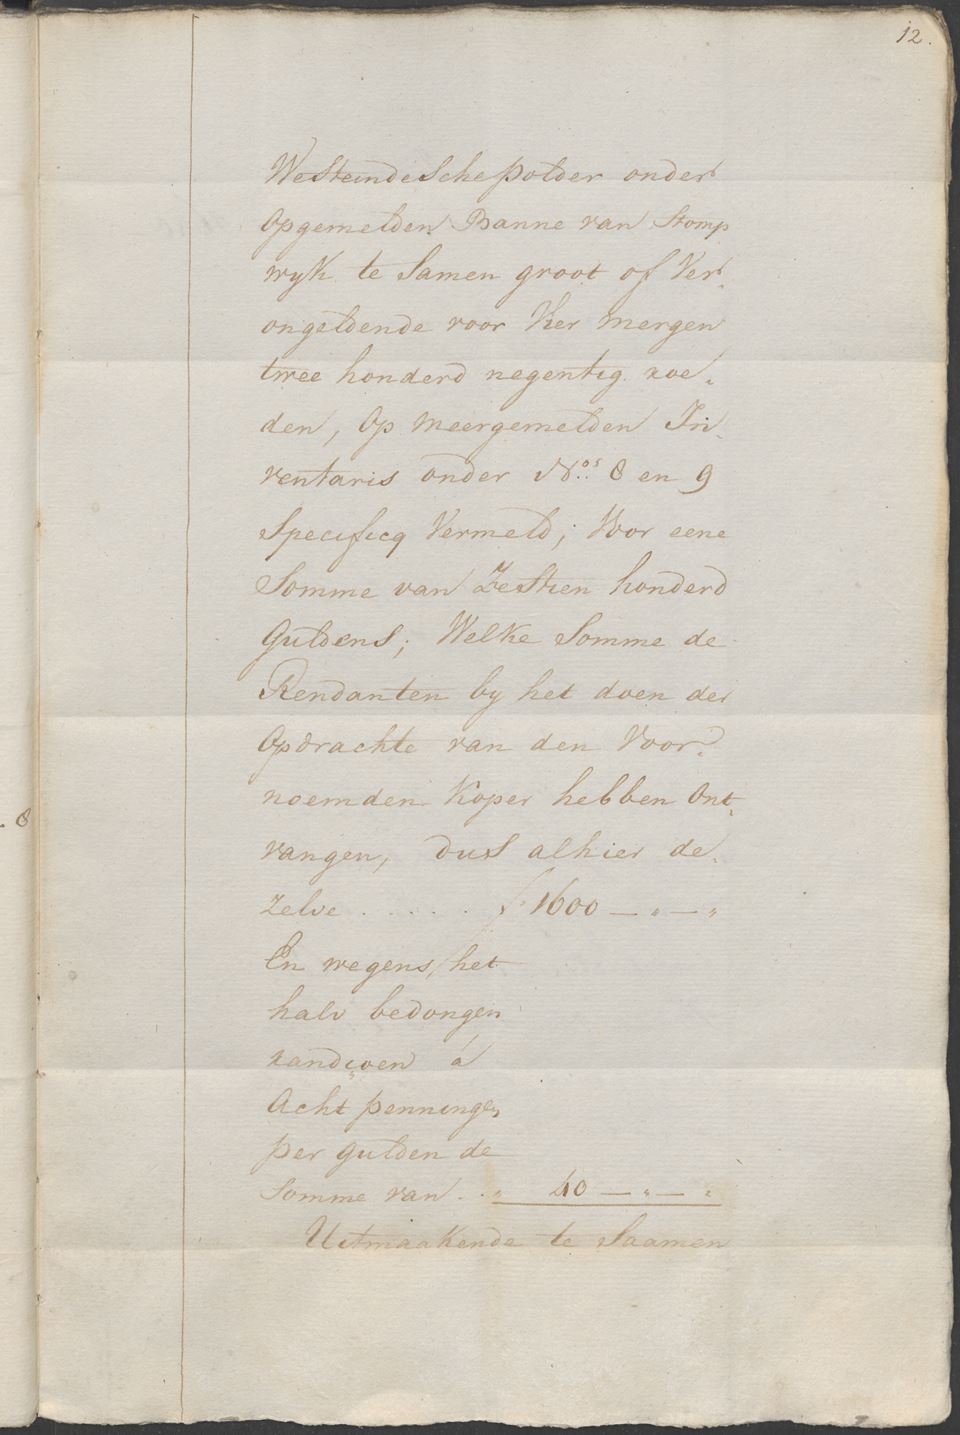 12.
WesteindeschePolder onder
Opgemelden Banne van Stomp
wyk te Samen groot of Ver.
ongeldende voor Vier Mergen
twee honderd negentig roe.
den, Op Meergemelden In.
ventaris onder Nos. 8 en 9
Specificq Vermeld; Voor eene
Somme van Zestien honderd
Guldens; Welke Somme de
Rendanten by het doen der
Opdrachte van den Voor.
noemden Koper hebben Ont.
vangen, dus alhier de.
zelve . . . . . f 1600 — „ — „
En wegens het
halv bedongen
randçoen á
Acht penningen
per Gulden de
Somme van . . „ 40 — „ — „
Uitmaakende te Saamen
8